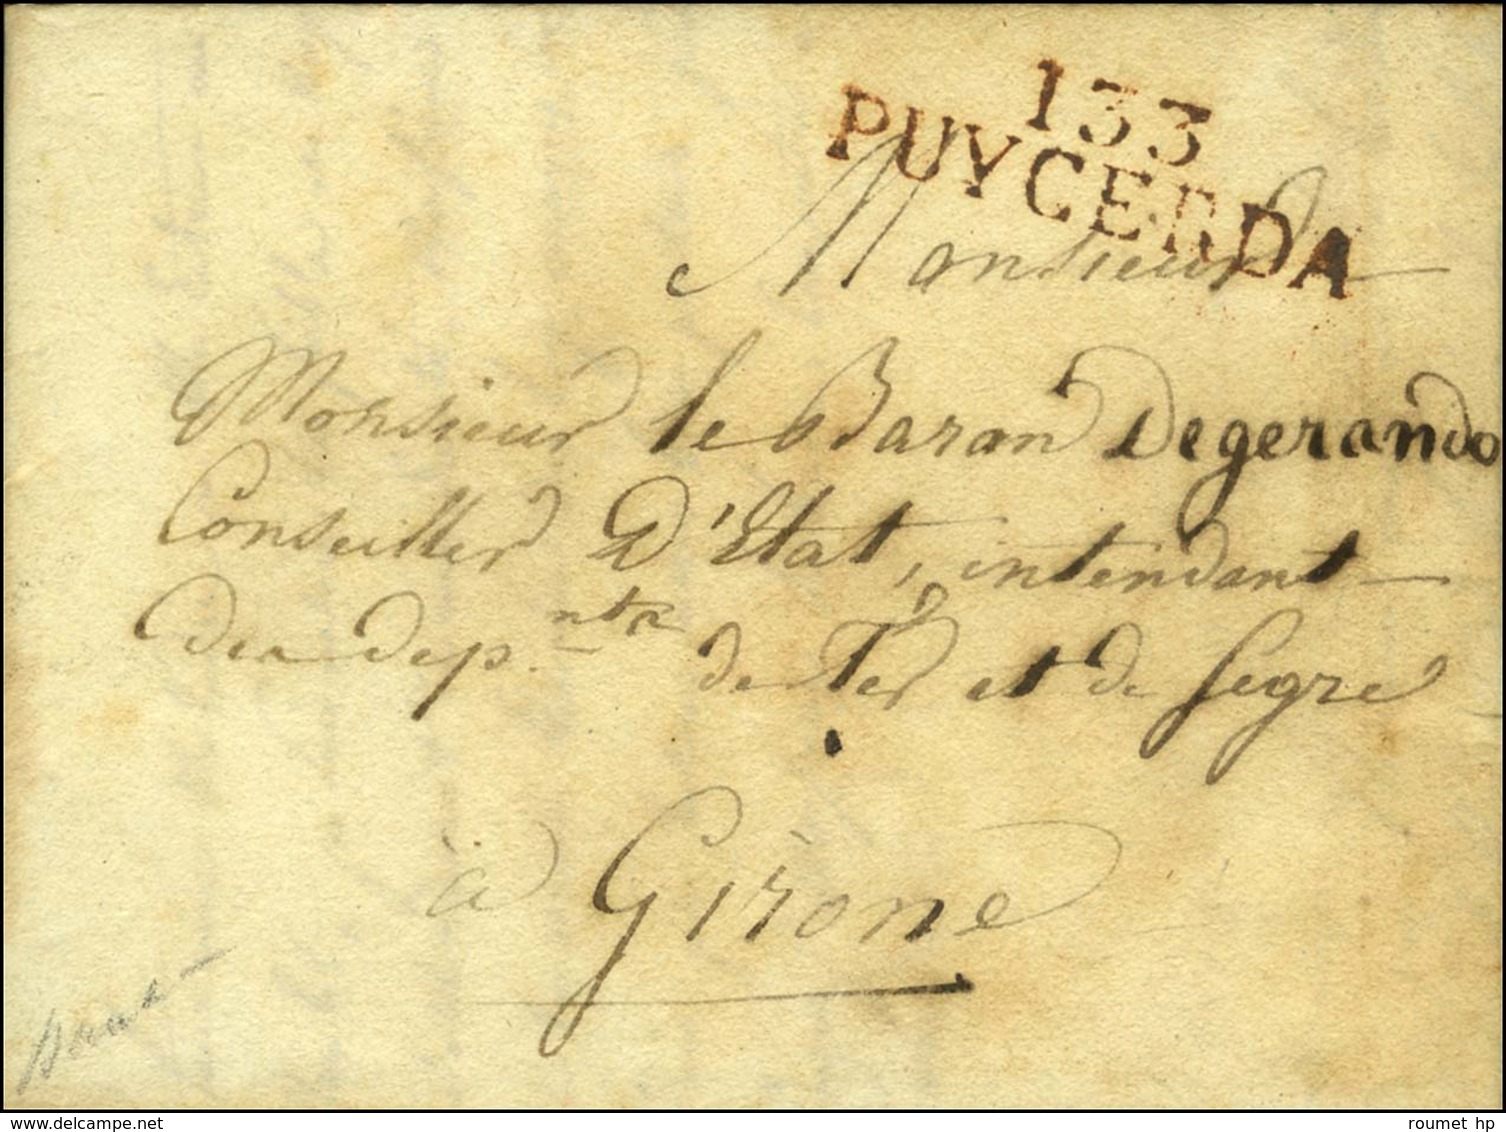 133
PUYCERDA
Monsieur
Monsieur le Baron Degerando
Conseiller D'Etat, intendant
des dep.nts de Ter et de Segre
à Girone
roumet hp